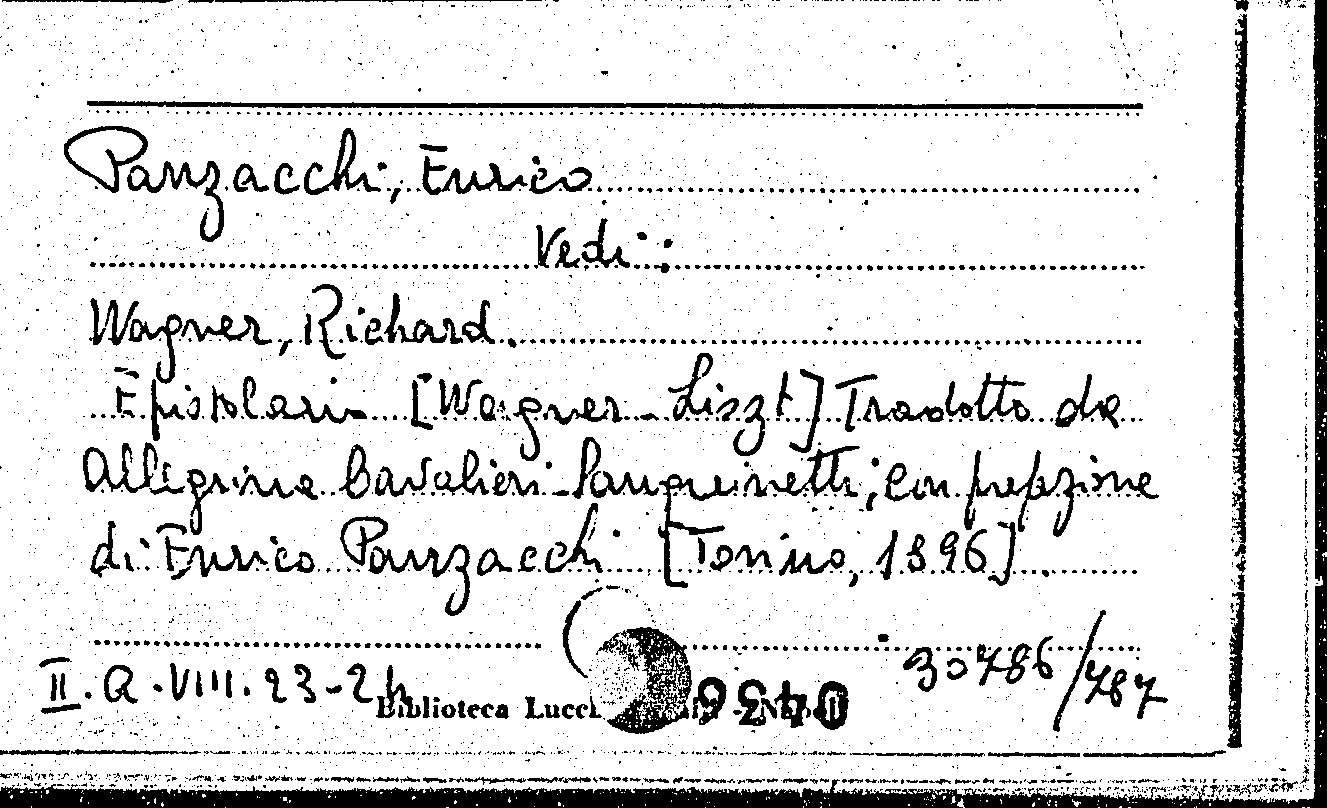 Panzacchi, Enrico
Vedi:
Wagner, Richard.
Epistolario [Wagner - Liszt] Tradotto da
Allegrina Cavalieri-Sanguinetti; con prefazione
di Enrico Panzacchi [Torino, 1896].
30786/787
II.Q.VIII.23-24
Biblioteca
0436